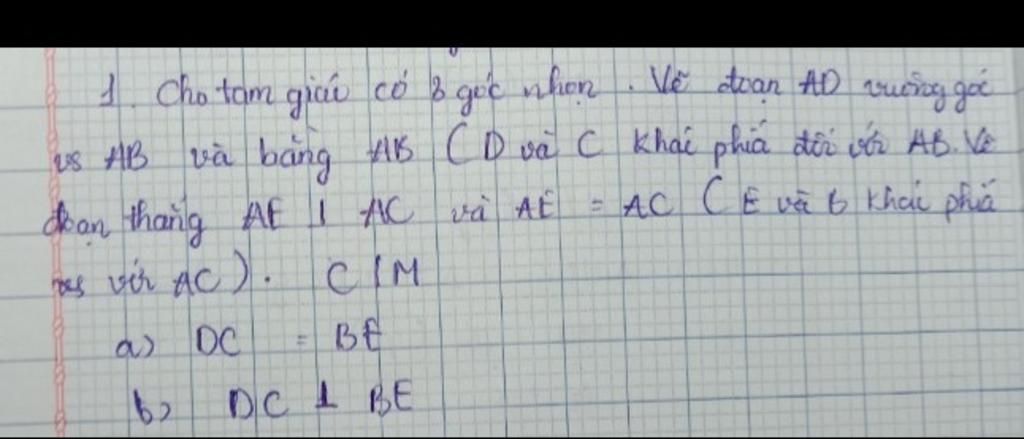 1. Cho tam giác có 3 góc nhọn. Vẽ đoạn AD vuông góc
vs AB và bằng AB (D và C khác phía đối với AB. Vẽ
đoạn thẳng AE ⊥ AC và AE = AC (E và B khác phía
với AC). C/M
a) DC = BE
b) DC ⊥ BE